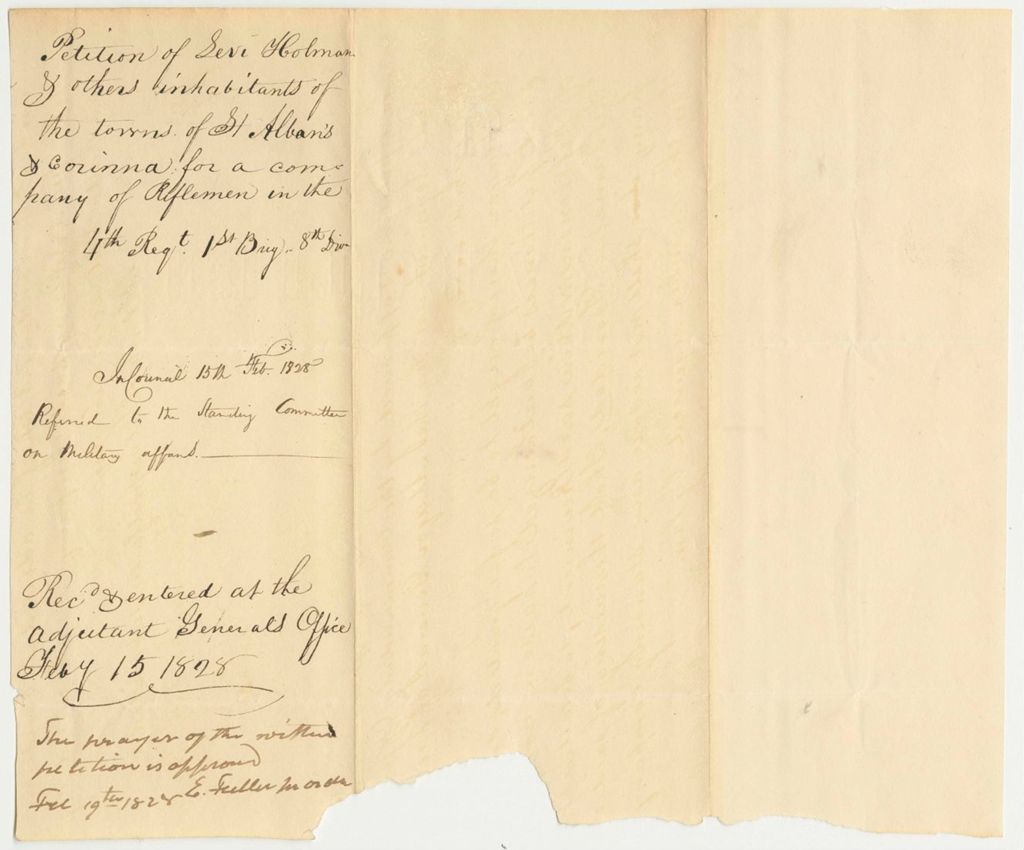 Petition of Levi Holman
& others inhabitants of
the towns of St Alban's
& Corinna for a com-
pany of Riflemen in the
4th Regt. 1st Brig. 8th Div
In Council 15th Feb. 1828
Referred to the Standing Committee
on Military affairs.
Recd & entered at the
Adjutant Generals Office
Feby 15 1828
The prayer of the within
petition is approved
Feb 19th 1828 E. Fuller